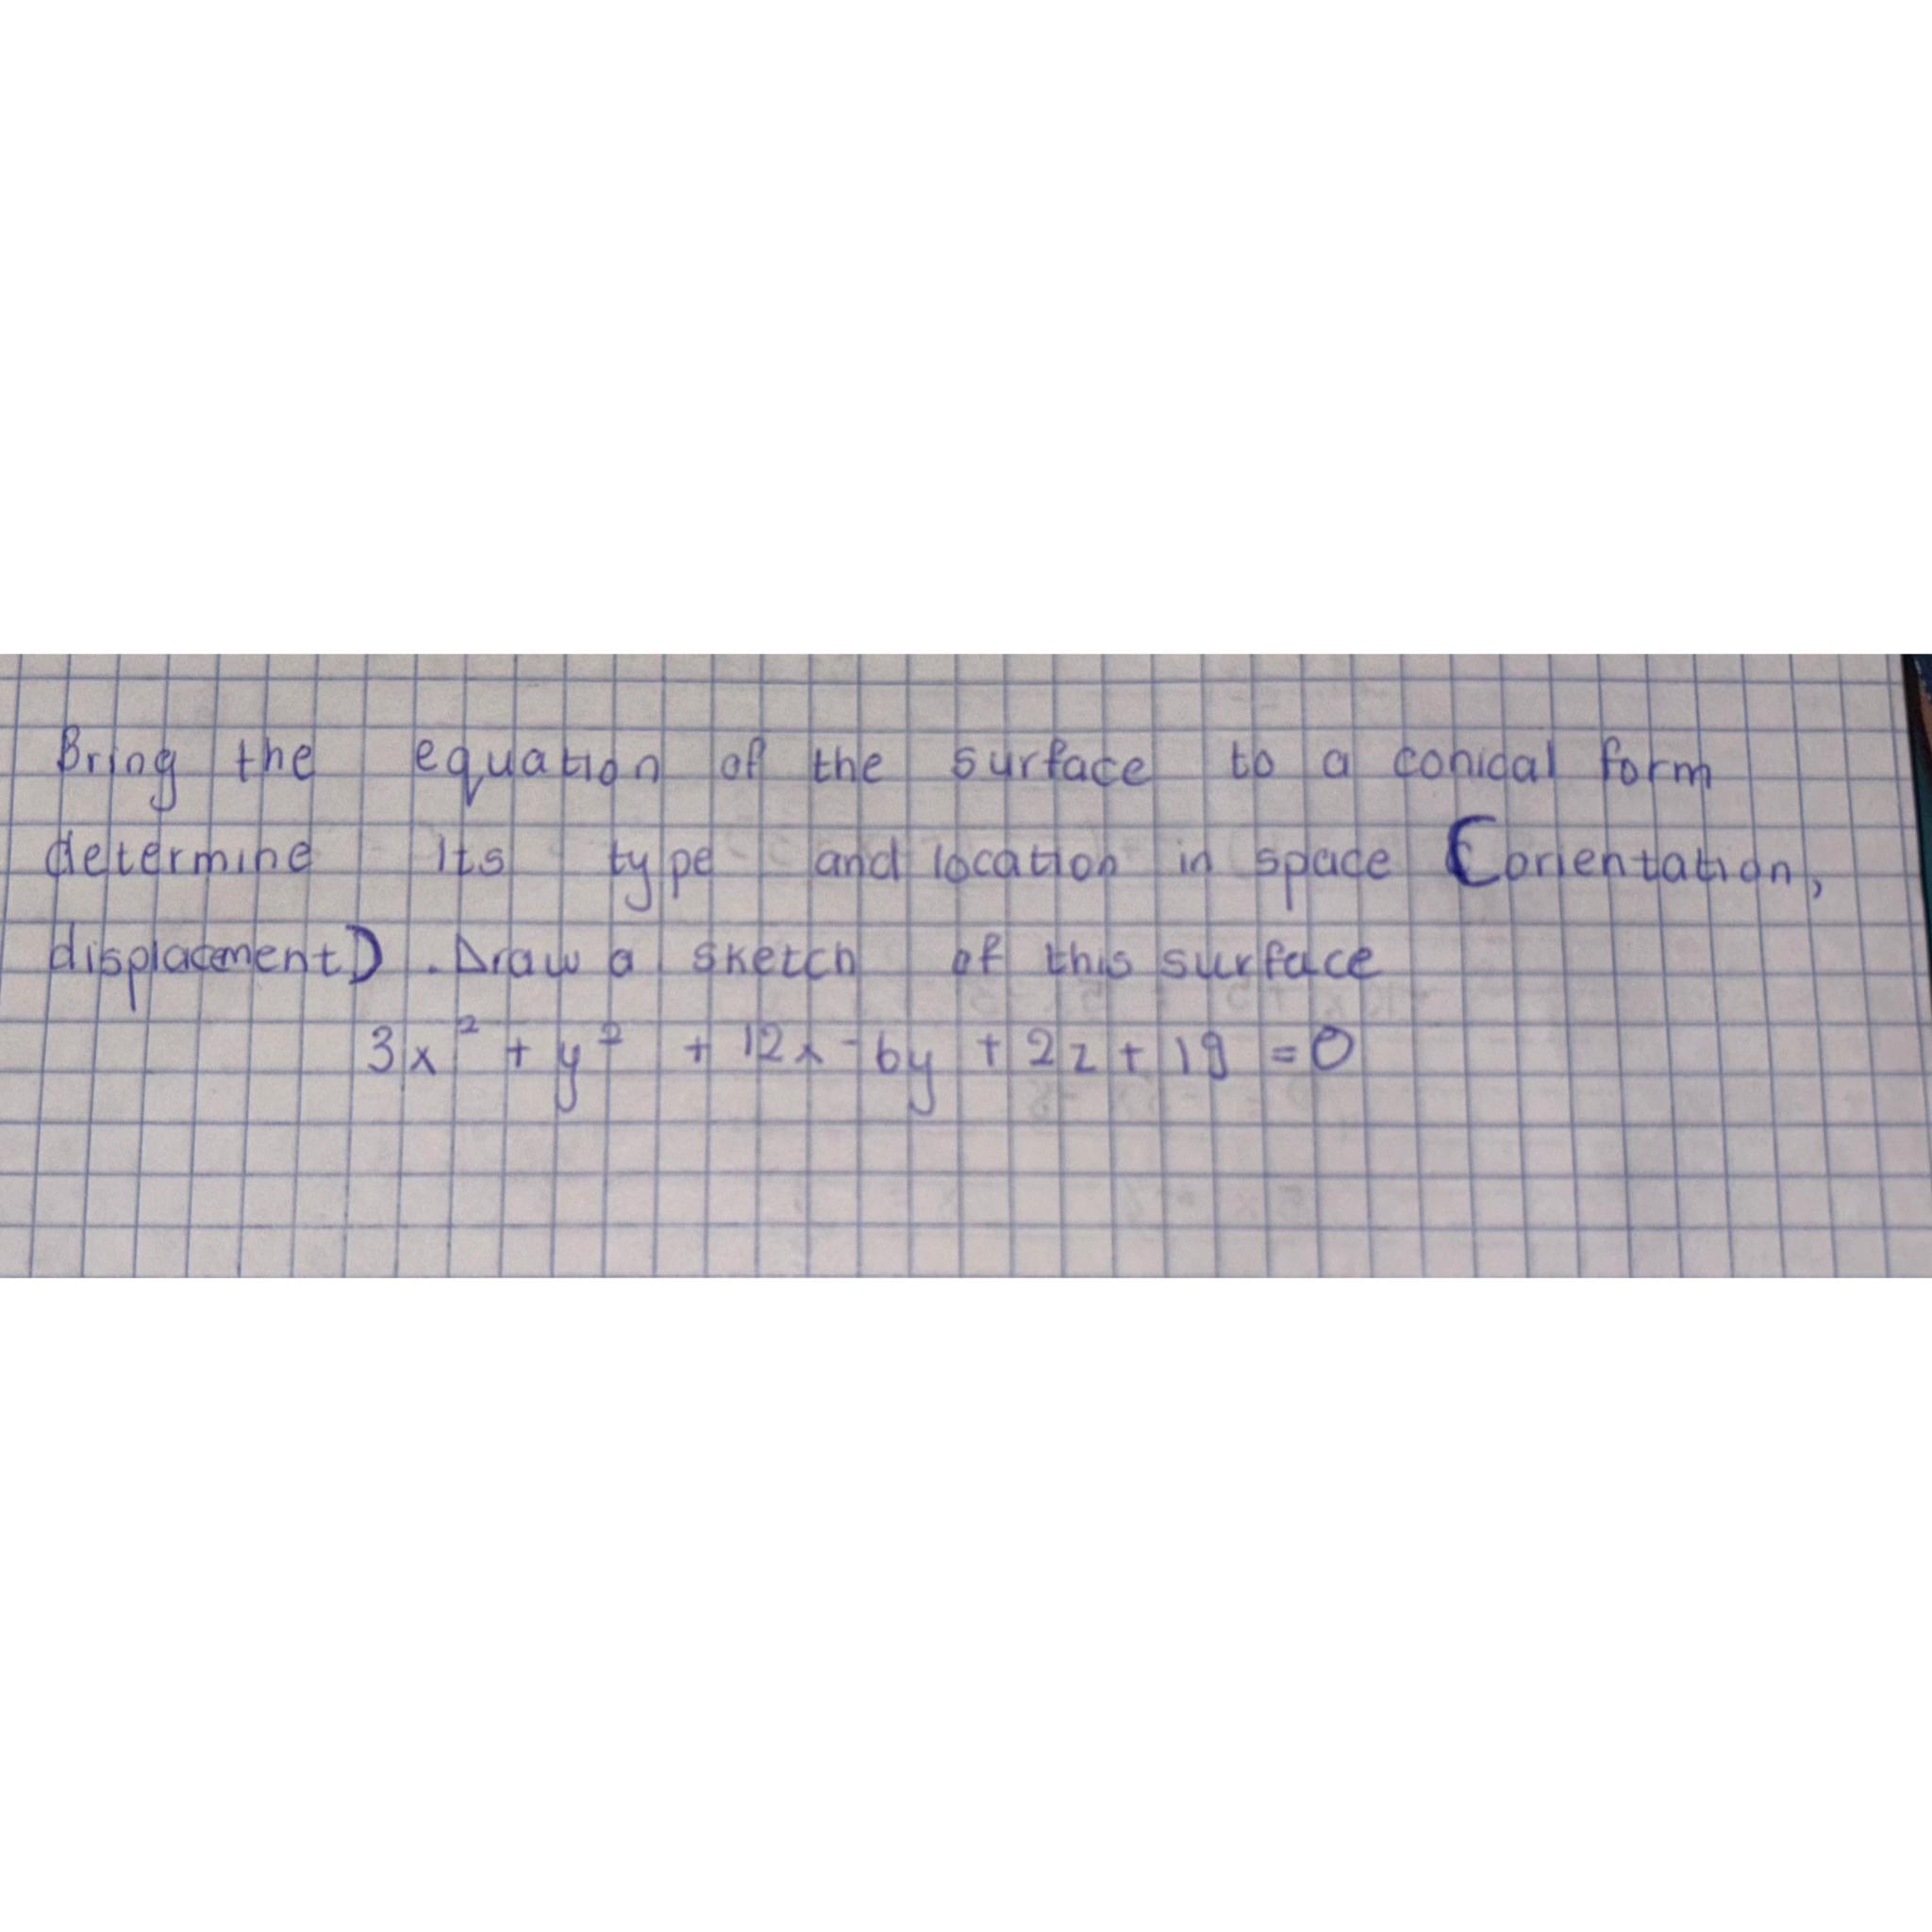 Bring the equation of the surface to a conical form
determine its type and location in space (orientation,
displacement). Draw a sketch of this surface
3x² + y² + 12x - 6y + 2z + 19 = 0